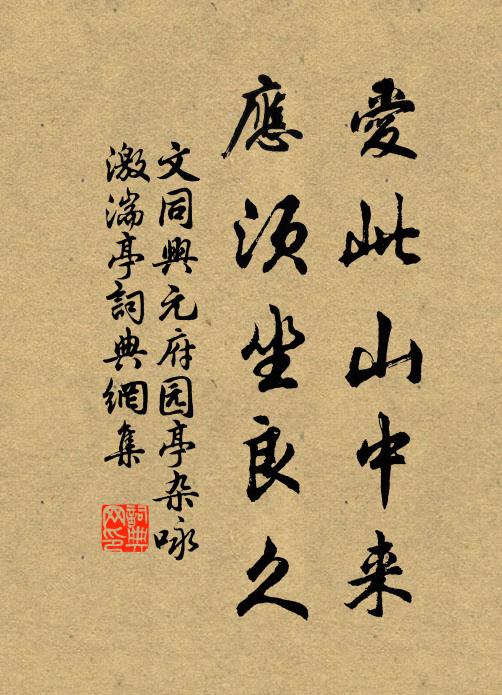 愛此山中来
應須坐良久
文同興元府园亭杂咏
激湍亭詞典網集
詞典
网印